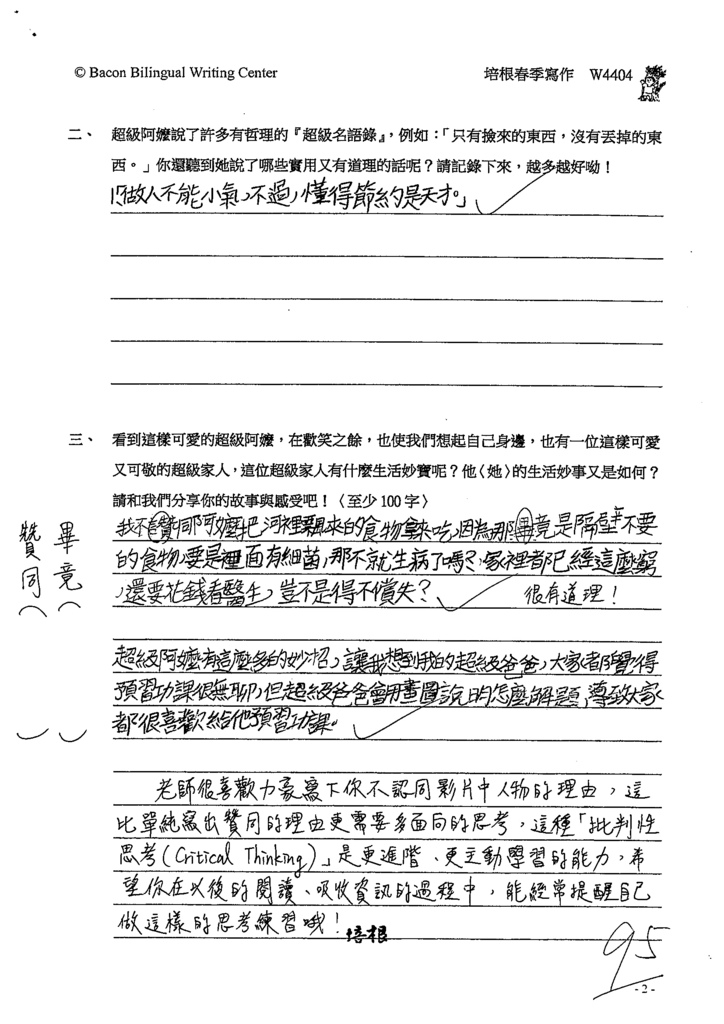 © Bacon Bilingual Writing Center
培根春季寫作 W4404
二、 超級阿嬤說了許多有哲理的『超級名語錄』，例如：「只有撿來的東西，沒有丟掉的東
西。」你還聽到她說了哪些實用又有道理的話呢？請記錄下來，越多越好呦！
1.「做人不能小氣，不過，懂得節約是天才。」
三、 看到這樣可愛的超級阿嬤，在歡笑之餘，也使我們想起自己身邊，也有一位這樣可愛
又可敬的超級家人，這位超級家人有什麼生活妙寶呢？他〈她〉的生活妙事又是如何？
請和我們分享你的故事與感受吧！〈至少 100 字〉
我不贊同阿嬤把河裡飄來的食物拿來吃，因為那畢竟是隔壁不要
的食物，要是裡面有細菌，那不就生病了嗎？家裡都已經這麼窮
，還要花錢看醫生，豈不是得不償失？
很有道理！
贊同
畢竟
超級阿嬤有這麼多的妙招，讓我想到我的超級爸爸，大家都覺得
預習功課很無聊，但超級爸爸會用畫圖說明怎麼解題，導致大家
都很喜歡給他預習功課。
老師很喜歡力豪寫下你不認同影片中人物的理由，這
比單純寫出贊同的理由更需要多面向的思考，這種「批判性
思考(Critical Thinking)」是更進階、更主動學習的能力，希
望你在以後的閱讀、吸收資訊的過程中，能經常提醒自己
做這樣的思考練習哦！
培根
95
- 2 -